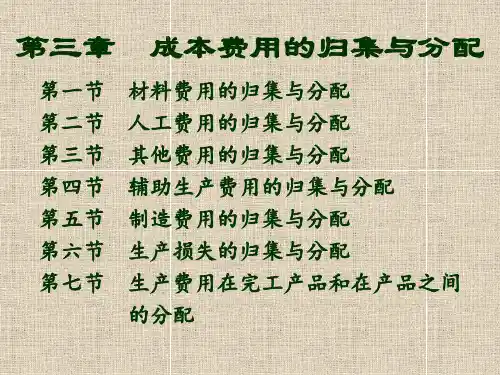 第三章 成本费用的归集与分配
第一节 材料费用的归集与分配
第二节 人工费用的归集与分配
第三节 其他费用的归集与分配
第四节 辅助生产费用的归集与分配
第五节 制造费用的归集与分配
第六节 生产损失的归集与分配
第七节 生产费用在完工产品和在产品之间
的分配